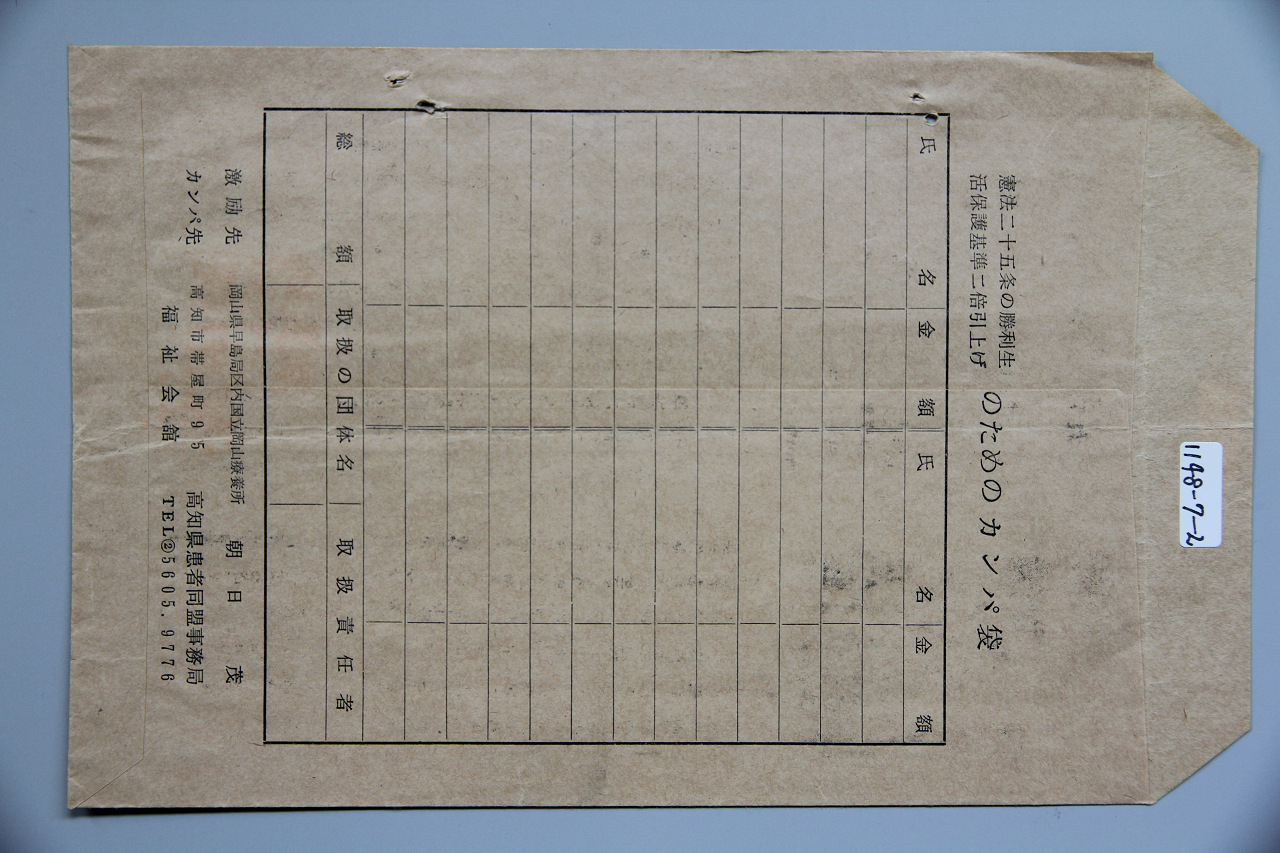 1148-7-2
憲法二十五条の勝利生
活保護基準二倍引上げ
のためのカンパ袋
氏名 金額 氏名 金額
総額 取扱の団体名 取扱責任者
激励先 岡山県早島局区内国立岡山療養所 朝日茂
カンパ先 高知市帯屋町95 高知県患者同盟事務局
福祉会館 TEL②5605.9776